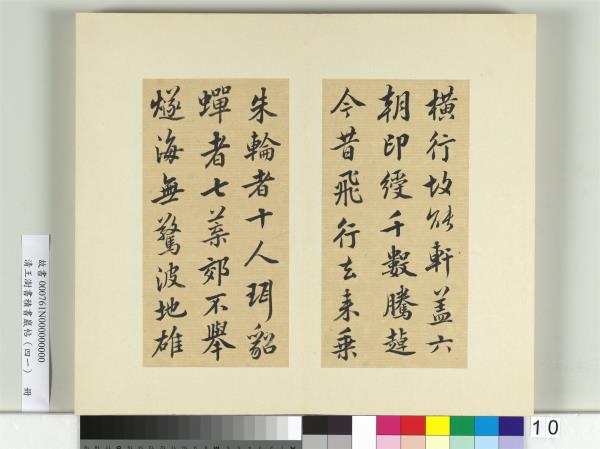 橫行故能軒蓋六
朝印綬千數騰趠
今昔飛行去來乘
朱輪者十人珥貂
蟬者七葉郊不舉
燧海無驚波地雄
故書 000761N000000000
清王澍書積書巖帖（四一） 冊
10